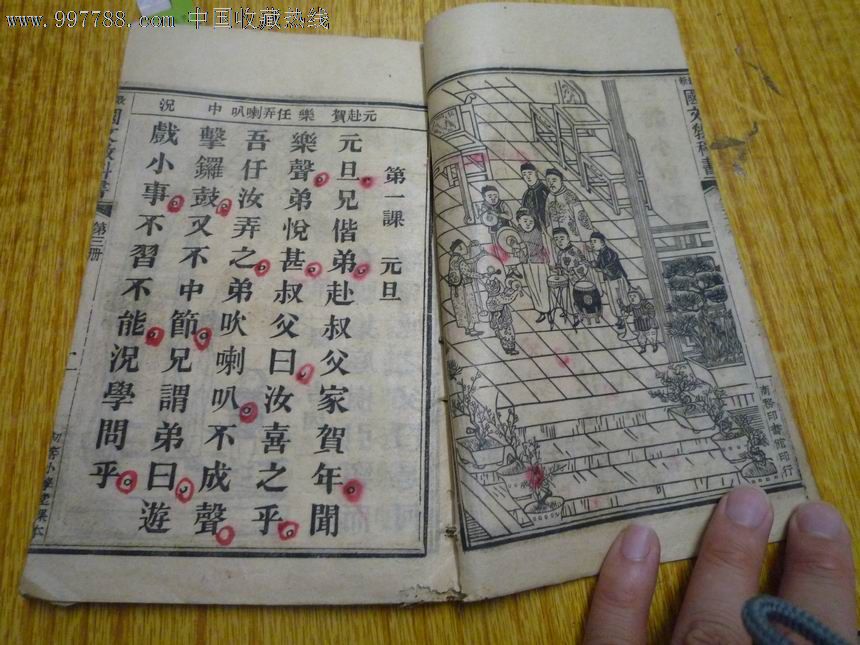 www.997788.com 中国收藏热线
國文教科書
商務印書館印行
元赴賀 樂 任弄喇叭 中 況
第一課 元旦
元旦。兄偕弟。赴叔父家賀年。聞
樂聲。弟悅甚。叔父曰。汝喜之乎。
吾任汝弄之。弟吹喇叭。不成聲。
擊鑼鼓。又不中節。兄謂弟曰。遊
戲小事。不習不能。況學問乎。
國文教科書
第三册